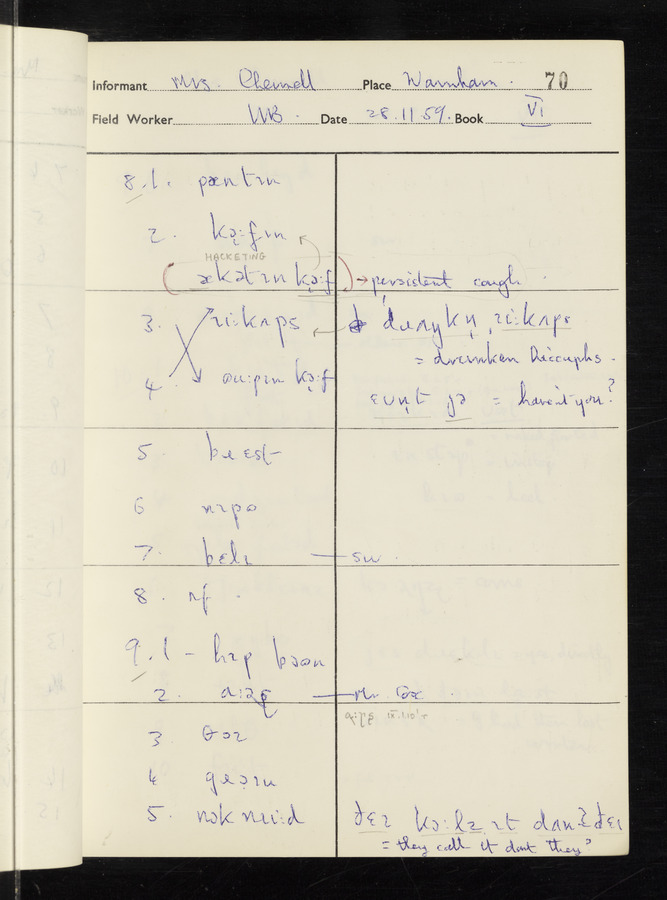 Informant Mrs. Chennell Place Warnham. 70
Field Worker WB. Date 28.11.59. Book VI
8.1. pæntɪn
2. kɔ̣:fɪn
HACKETING
(ækətɪn kɔ̣:f) → persistent cough.
3. ɪi:kʌps dɹʌŋkn̩ ɪi:kʌps
= drunken hiccups.
4. ou:pɪn kɔ̣:f
ɛvn̩t jə = haven't you?
5. bɹɛst
6 nɪpə
7. bɛlɪ — sw.
8. ɹɪf.
9.1 - hɪp bəʊn
2. — Mr.
IX.1.10'r
3.
4
5. nɒk nɹi:d ðɛɪ kɔ:lz ɪt dəʊn? ðɛɪ
= they call it dont they?